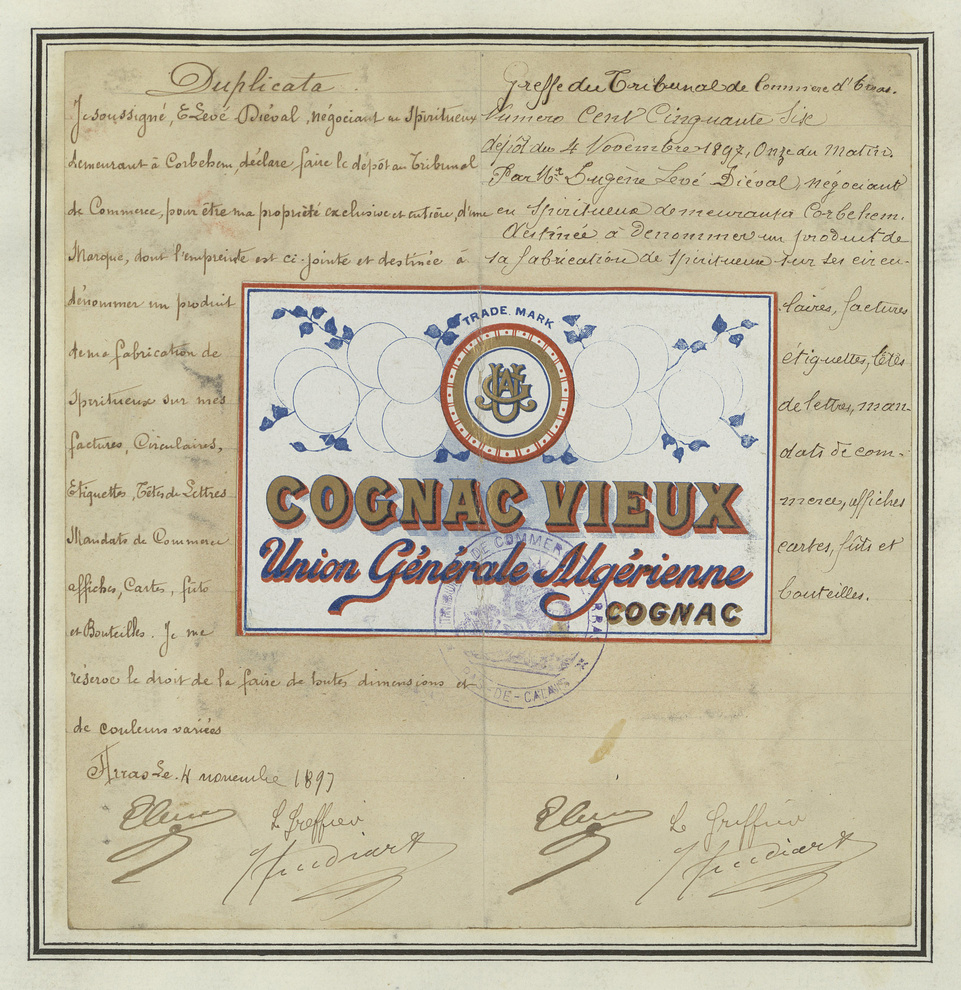 Duplicata
Je soussigné, E Levé Diéval, négociant en Spiritueux
demeurant à Corbehem, déclare faire le dépôt au Tribunal
de Commerce, pour être ma propriété exclusive et entière, d'une
Marque, dont l'empreinte est ci-jointe et destinée à
dénommer un produit
de ma fabrication de
Spiritueux sur mes
factures, Circulaires,
Etiquettes, Têtes de Lettres
Mandats de Commerce
affiches, Cartes, fûts
et Bouteilles. Je me
réserve le droit de la faire de toutes dimensions et
de couleurs variées
Arras Le. 4 novembre 1897
Le Greffier
Greffe du Tribunal de Commerce d'Arras.
Numéro Cent Cinquante Six
dépôt du 4 Novembre 1897, Onze du Matin.
Par Mr. Eugène Levé Diéval, négociant
en Spiritueux demeurant à Corbehem.
Destinée à dénommer un produit de
sa fabrication de Spiritueux sur ses circu-
laires, factures
étiquettes, têtes
de lettres, man-
dats de com-
merce, affiches
cartes, fûts et
bouteilles.
Le Greffier
TRADE MARK
COGNAC VIEUX
Union Générale Algérienne
COGNAC
DE COMMERCE
ARRAS
DE-CALAIS